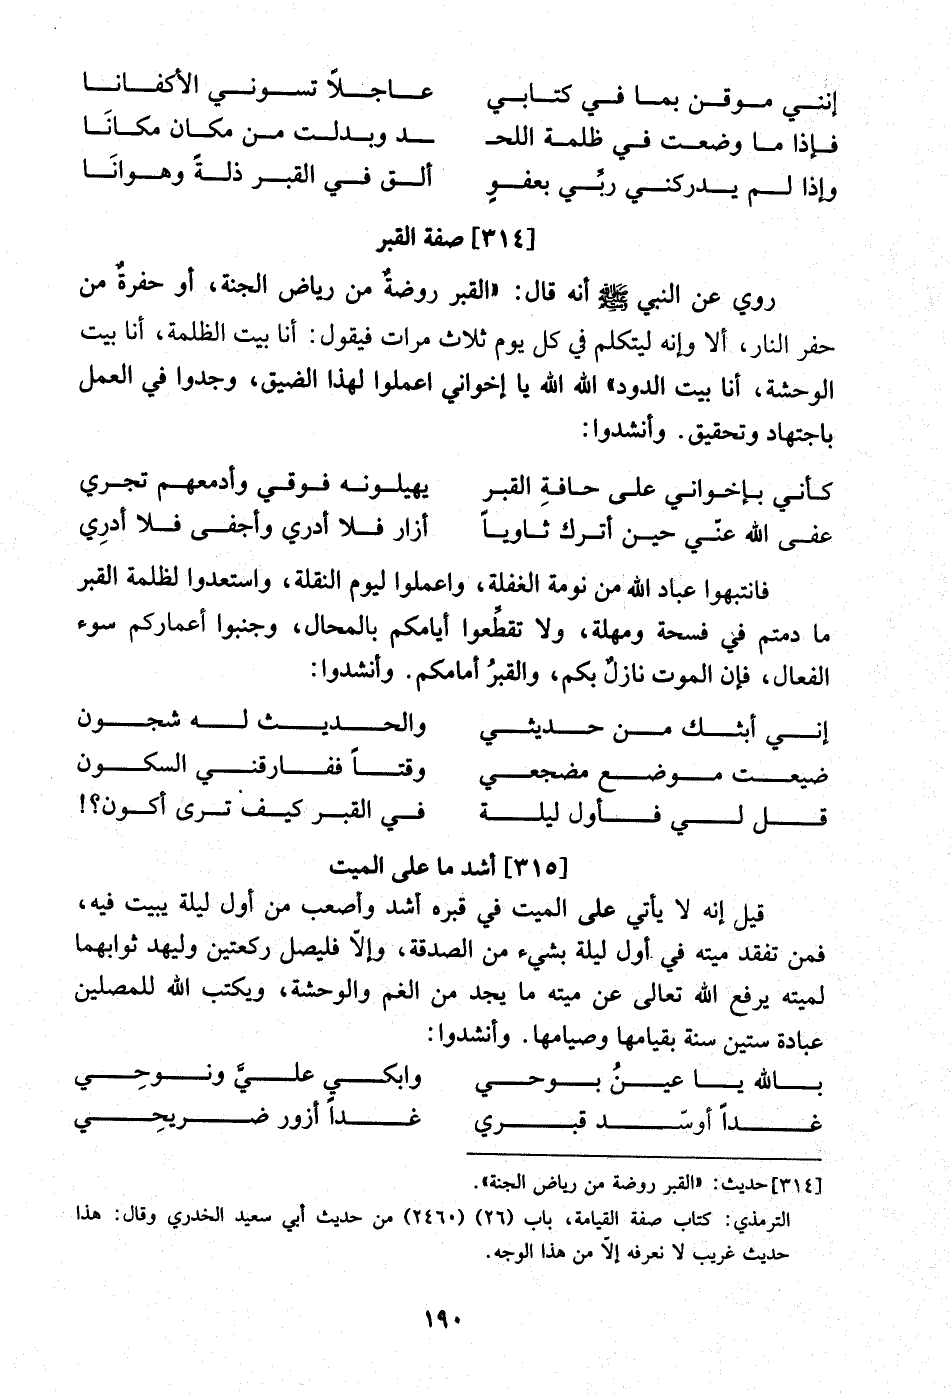 إنني موقن بما في كتابي    عاجلاً تسوني الأكفانا
فإذا ما وضعت في ظلمة اللحـ    ـد وبدلت من مكان مكانَا
وإذا لم يدركني ربَّي بعفوٍ    ألق في القبر ذلةً وهوانَا
[٣١٤] صفة القبر
روي عن النبي ﷺ أنه قال: «القبر روضةٌ من رياض الجنة، أو حفرةٌ من
حفر النار، ألا وإنه ليتكلم في كل يوم ثلاث مرات فيقول: أنا بيت الظلمة، أنا بيت
الوحشة، أنا بيت الدود» الله الله يا إخواني اعملوا لهذا الضيق، وجدوا في العمل
باجتهاد وتحقيق. وأنشدوا:
كأني بإخواني على حافةِ القبر    يهيلونه فوقي وأدمعهم تجري
عفى الله عنّي حين أترك ثاوياً    أزار فلا أدري وأجفى فلا أدرِي
فانتبهوا عباد الله من نومة الغفلة، واعملوا ليوم النقلة، واستعدوا لظلمة القبر
ما دمتم في فسحة ومهلة، ولا تقطَّعوا أيامكم بالمحال، وجنبوا أعماركم سوء
الفعال، فإن الموت نازلٌ بكم، والقبرُ أمامكم. وأنشدوا:
إني أبثك من حديثي    والحديث له شجون
ضيعت موضع مضجعي    وقتاً ففارقني السكون
قل لي فأول ليلة    في القبر كيف ترى أكون؟!
[٣١٥] أشد ما على الميت
قيل إنه لا يأتي على الميت في قبره أشد وأصعب من أول ليلة يبيت فيه،
فمن تفقد ميته في أول ليلة بشيء من الصدقة، وإلاّ فليصل ركعتين وليهد ثوابهما
لميته يرفع الله تعالى عن ميته ما يجد من الغم والوحشة، ويكتب الله للمصلين
عبادة ستين سنة بقيامها وصيامها. وأنشدوا:
بالله يا عينُ بوحي    وابكي عليَّ ونوحِي
غداً أوسّد قبري    غداً أزور ضريحِي
[٣١٤] حديث: «القبر روضة من رياض الجنة».
الترمذي: كتاب صفة القيامة، باب (٢٦) (٢٤٦٠) من حديث أبي سعيد الخدري وقال: هذا
حديث غريب لا نعرفه إلاّ من هذا الوجه.
١٩٠